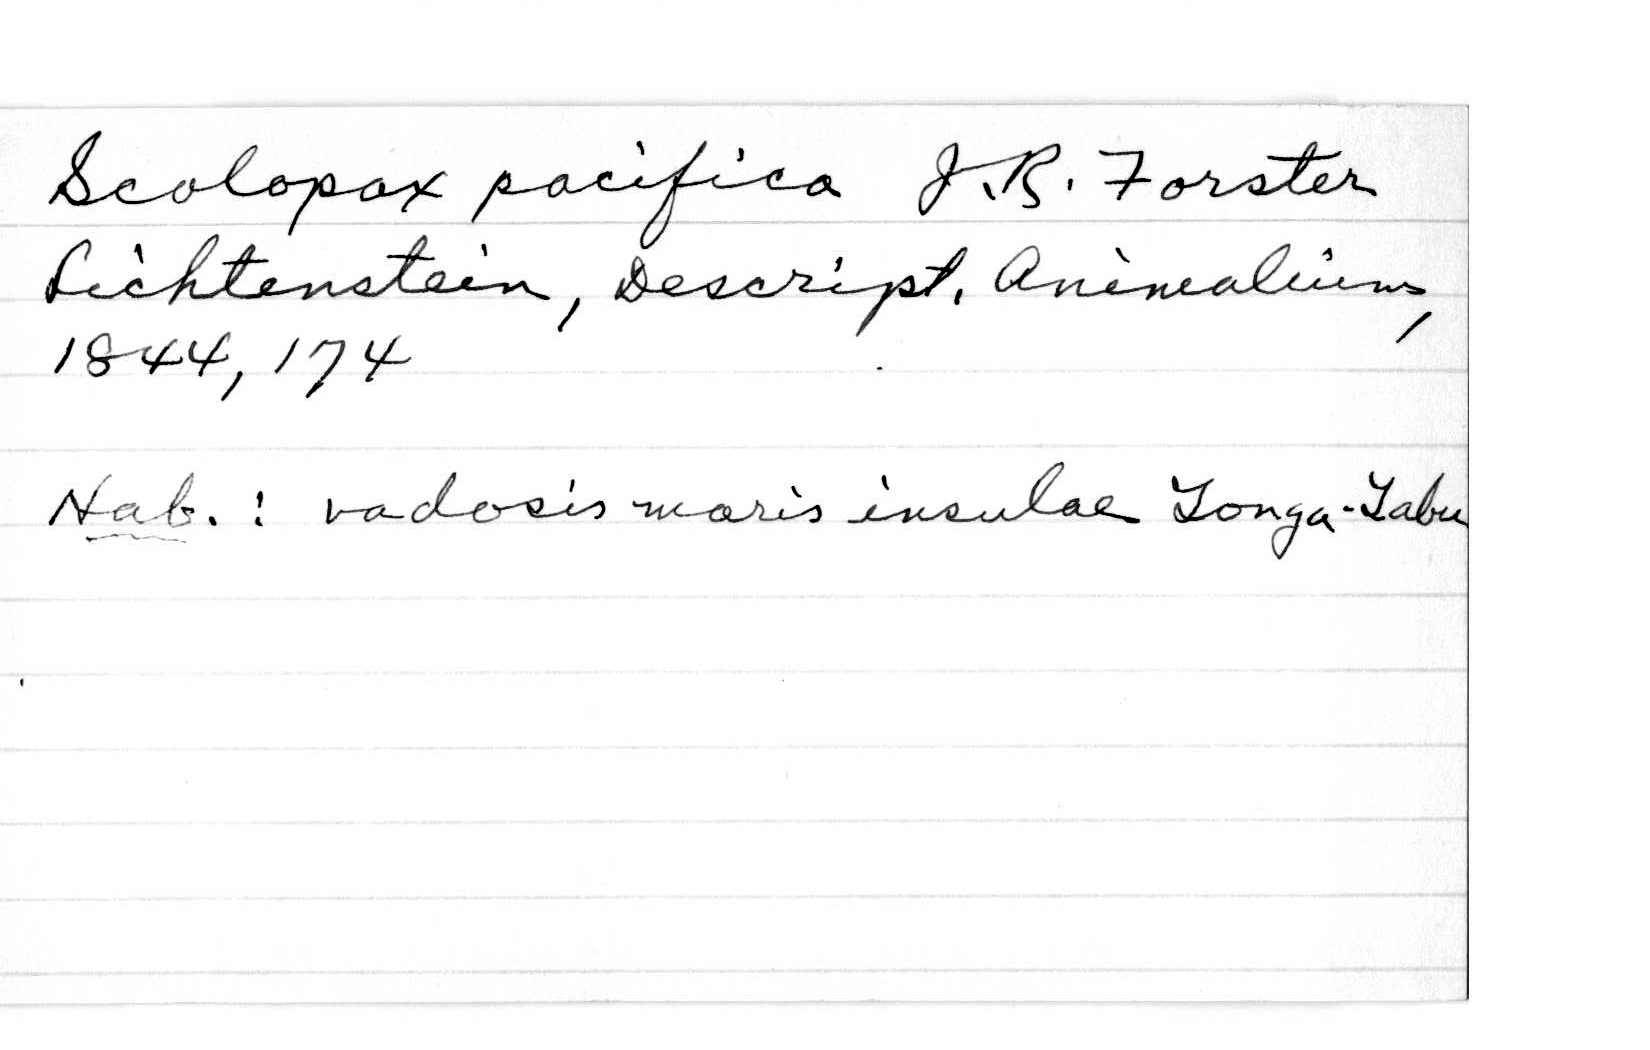 Scolopax pacifica J.R. Forster
Lichtenstein, Descript. Animalium,
1844, 174
Hab. : vadosis maris insulae Tonga-Tabu